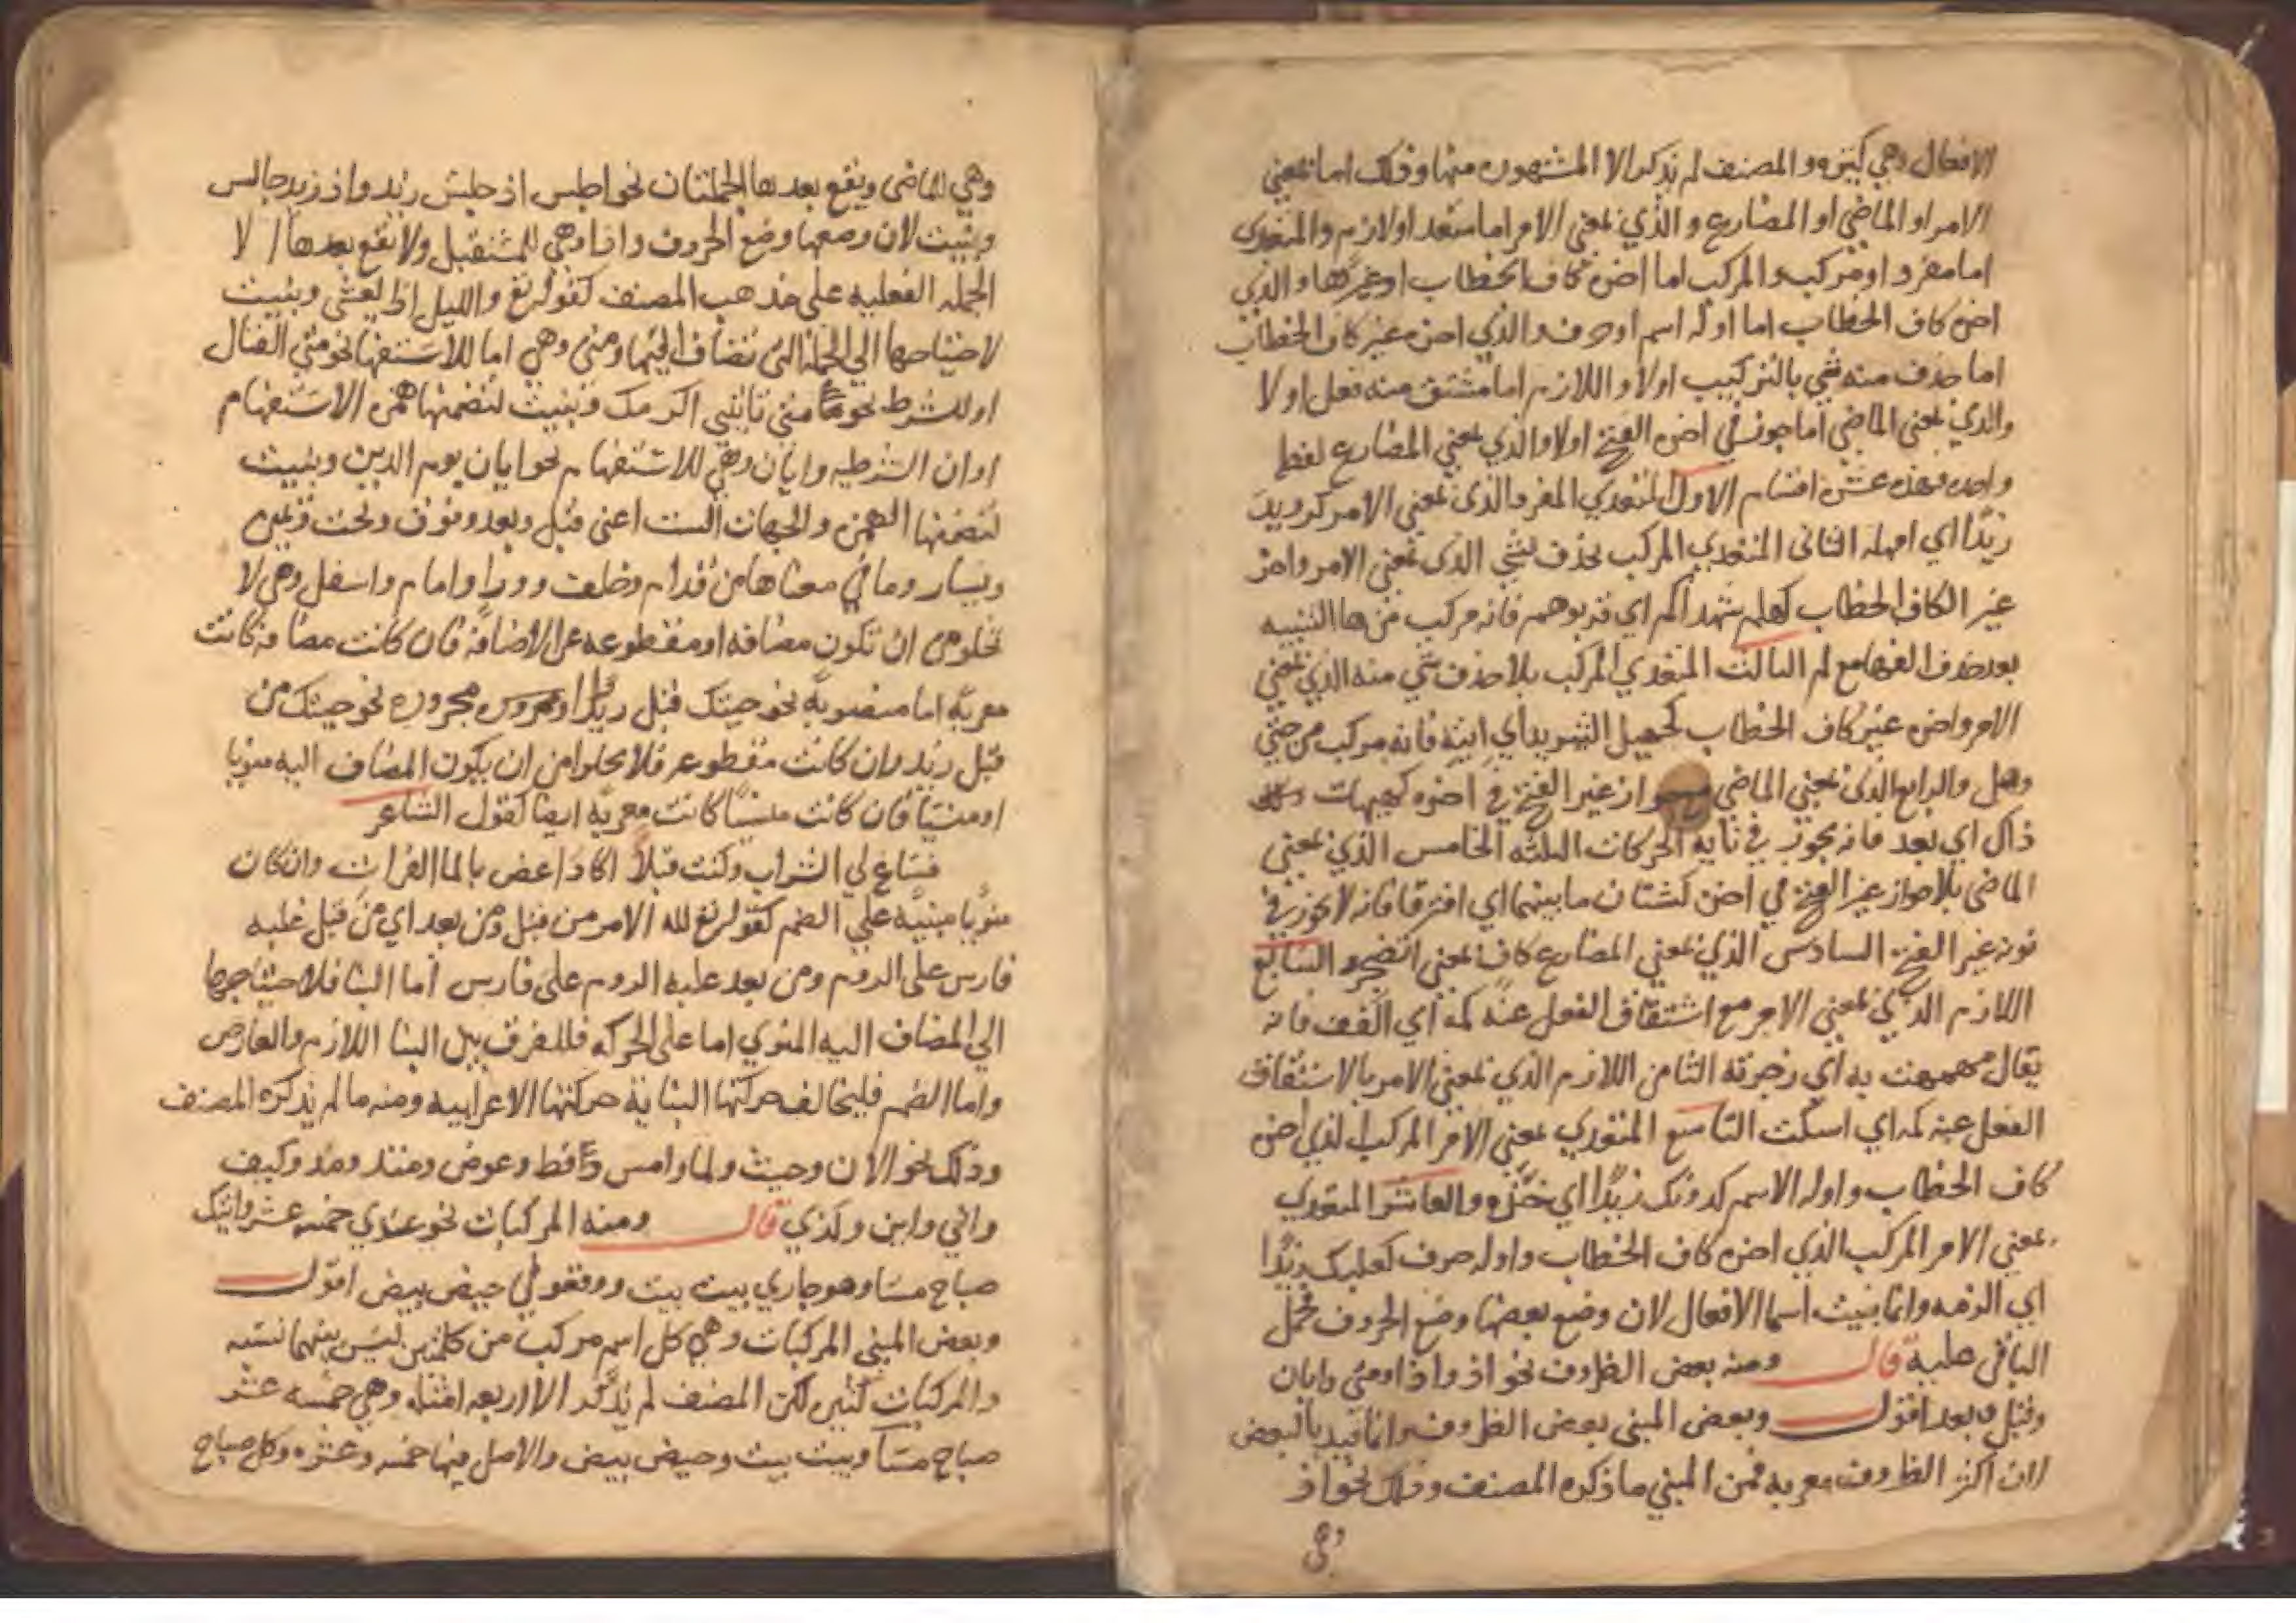 الافعال وهي كثيره والمصنف لم يذكر الا المشهوره منها وذلك اما بمعني
الامر او الماضي او المضارع والذي بمعني الامر اما متعد او لازم والمتعدي
اما مفرد او مركب والمركب اما اخره كاف الخطاب او غيرها والذي
اخره كاف الخطاب اما اوله اسم او حرف والذي اخره غير كاف الخطاب
اما حذف منه شي بالتركيب اولا واللازم اما مشتق منه فعل او لا
والذي بمعني الماضي اما جوز في اخره الفتح اولا والذي بمعني المضارع لفظ
واحد فهذه عشره اقسام الاول المتعدي المفرد الذي بمعني الامر كرويد
زيدًا اي امهله الثاني المتعدي المركب بحذف شي الذي بمعني الامر واخره
غير الكاف الخطاب كهلم شهداكم اي قربوهم فانه مركب من ها التنبيه
بعد حذف الفها مع لم الثالث المتعدي المركب بلا حذف شي منه الذي بمعني
الامر واخره غير كاف الخطاب كحيهل الثريد اي ايته فانه مركب من حي
وهل والرابع الذي بمعني الماضي بجواز غير الفتح في اخره كهيهات
ذاك اي بعد فانه يجوز في تايه الحركات الثلثه الخامس الذي بمعني
الماضي بلا جواز غير الفتح في اخره كشتان ما بينهما اي افترقا فانه لا يجوز في
نونه غير الفتح السادس الذي بمعني المضارع كاف بمعني اتضجر والسابع
اللازم الذي بمعني الامر مع اشتقاق الفعل عنه كمه اي اكفف فانه
يقال مهمهت به اي زجرته الثامن اللازم الذي بمعني الامر بالاشتقاق
الفعل عنه كمه اي اسكت التاسع المتعدي بمعني الامر المركب الذي اخره
كاف الخطاب واوله الاسم كدونك زيدًا اي خذه والعاشر المتعدي
بمعني الامر المركب الذي اخره كاف الخطاب واوله حرف كعليك زيدًا
اي الزمه وانما بنيت اسما الافعال لان وضع بعضها وضع الحروف فحمل
الباقي عليه قال ومنه بعض الظروف نحو اذ واذا ومتي وايان
وقبل وبعد اقول وبعض المبني بعض الظروف وانما قيد بالبعض
لان اكثر الظروف معربه فمن المبني ما ذكره المصنف وذلك نحو اذ
وهي
وهي للماضي ويقع بعدها الجملتان نحو اجلس اذ جلس زيد واذ زيد جالس
وبنيت لان وضعها وضع الحروف واذا وهي للمستقبل ولا يقع بعدها الا
الجمله الفعليه علي مذهب المصنف كقوله تع والليل اذا يغشي وبنيت
لاحتياجها الي الجمله التي تضاف اليها ومتي وهي اما للاستفهام نحو متي القتال
او للشرط نحو متي تاتني اكرمك وبنيت لتضمنها همزه الاستفهام
او ان الشرطيه وايان وهي للاستفهام نحو ايان يوم الدين وبنيت
لتضمنها الهمزه والجهات الست اعني قبل وبعد وفوق وتحت ويمين
ويسار وما في معناها من قدام وخلف وورا وامام واسفل وهي لا
تخلو من ان تكون مضافه او مقطوعه عن الاضافه فان كانت مضافه كانت
معربه اما منصوبه نحو جيتك قبل زيد او مجروره نحو جيتك من
قبل زيد وان كانت مقطوعه فلا يخلوا من ان يكون المضاف اليه منويا
او منسيًا فان كانت منسيًا كانت معربه ايضا كقول الشاعر
فساغ لي الشراب وكنت قبلاً اكاد اغص بالما الفرات وان كان
منويًا مبنيه علي الضم كقوله تع لله الامر من قبل ومن بعد اي من قبل غلبه
فارس علي الروم ومن بعد غلبه الروم علي فارس اما البنا فلاحتياجها
الي المضاف اليه المنوي اما علي الحركه فللفرق بين البنا اللازم والعارض
واما الضم فليخالف حركتها البنايه حركتها الاعرابيه ومنه ما لم يذكره المصنف
وذلك نحو الان وحيث ولما وامس وقط وعوض ومنذ ومذ وكيف
واني واين ولدي قال ومنه المركبات نحو عندي خمسه عشر واتيك
صباح مسا وهو جاري بيت بيت ووقعوا في حيص بيص اقول
وبعض المبني المركبات وهي كل اسم مركب من كلمتين ليس بينهما نسبه
والمركبات كثير لكن المصنف لم يذكر الا اربعه امثله وهي خمسه عشر
صباح مسآ وبيت بيت وحيص بيص والاصل فيها خمسه وعشره وكل صباح